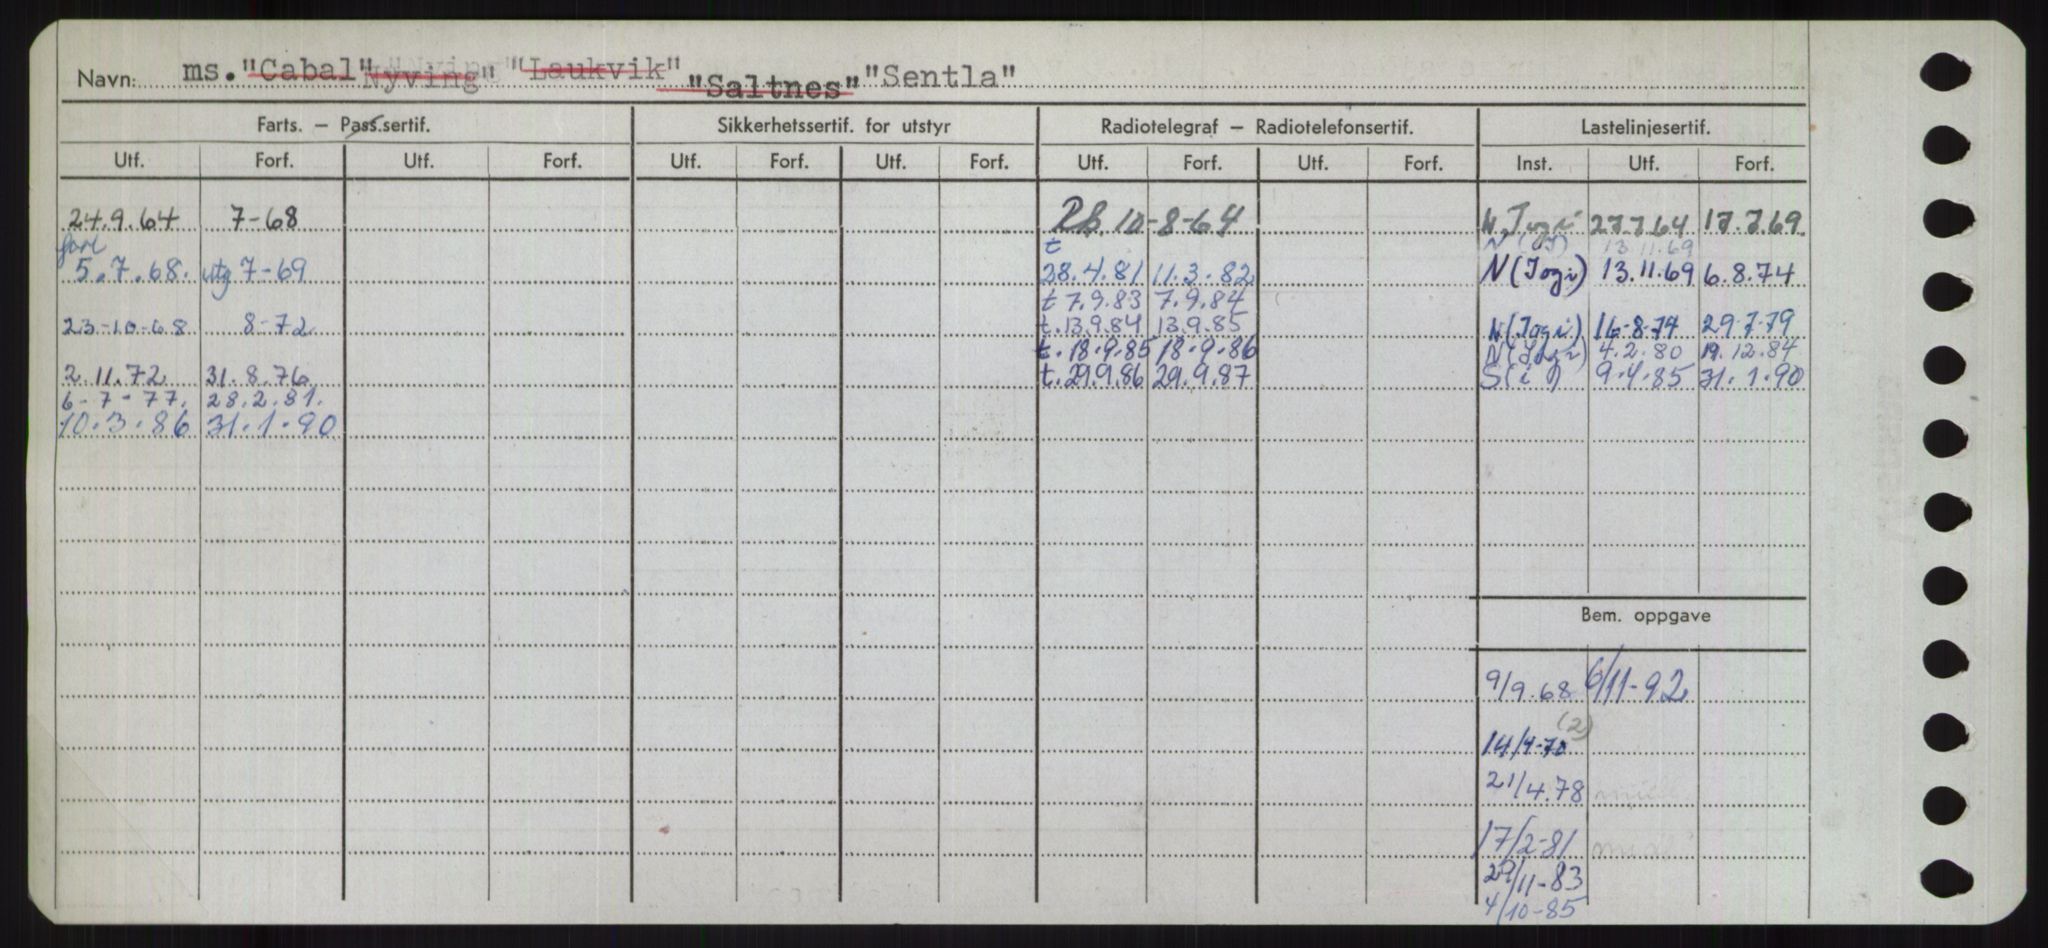 Navn: ms. "Cabal" "Nyving" "Laukvik" "Saltnes" "Sentla"
Farts. — Pass.sertif. Sikkerhetssertif. for utstyr Radiotelegraf — Radiotelefonsertif. Lastelinjesertif.
Utf. Forf. Utf. Forf. Utf. Forf. Utf. Forf. Utf. Forf. Utf. Forf. Inst. Utf. Forf.
24.9.64 7-68 10-8-64 N 27.7.64 17.7.69
forl t N 13.11.69
5.7.68. utg 7-69 28.4.81 11.3.82 N 13.11.69 6.8.74
t 7.9.83 7.9.84
23-10-68 8-72 t. 13.9.84 13.9.85 N 16-8-74 29-7-79
t. 18.9.85 18.9.86 N 4.2.80 19.12.84
2.11.72 31.8.76 t. 29.9.86 29.9.87 S 9.4.85 31.1.90
6-7-77. 28.2.81.
10.3.86 31.1.90
Bem. oppgave
9/9.68 6/11-92
(2)
14/4-70
21/4.78
17/2-81
29/11-83
4/10-85